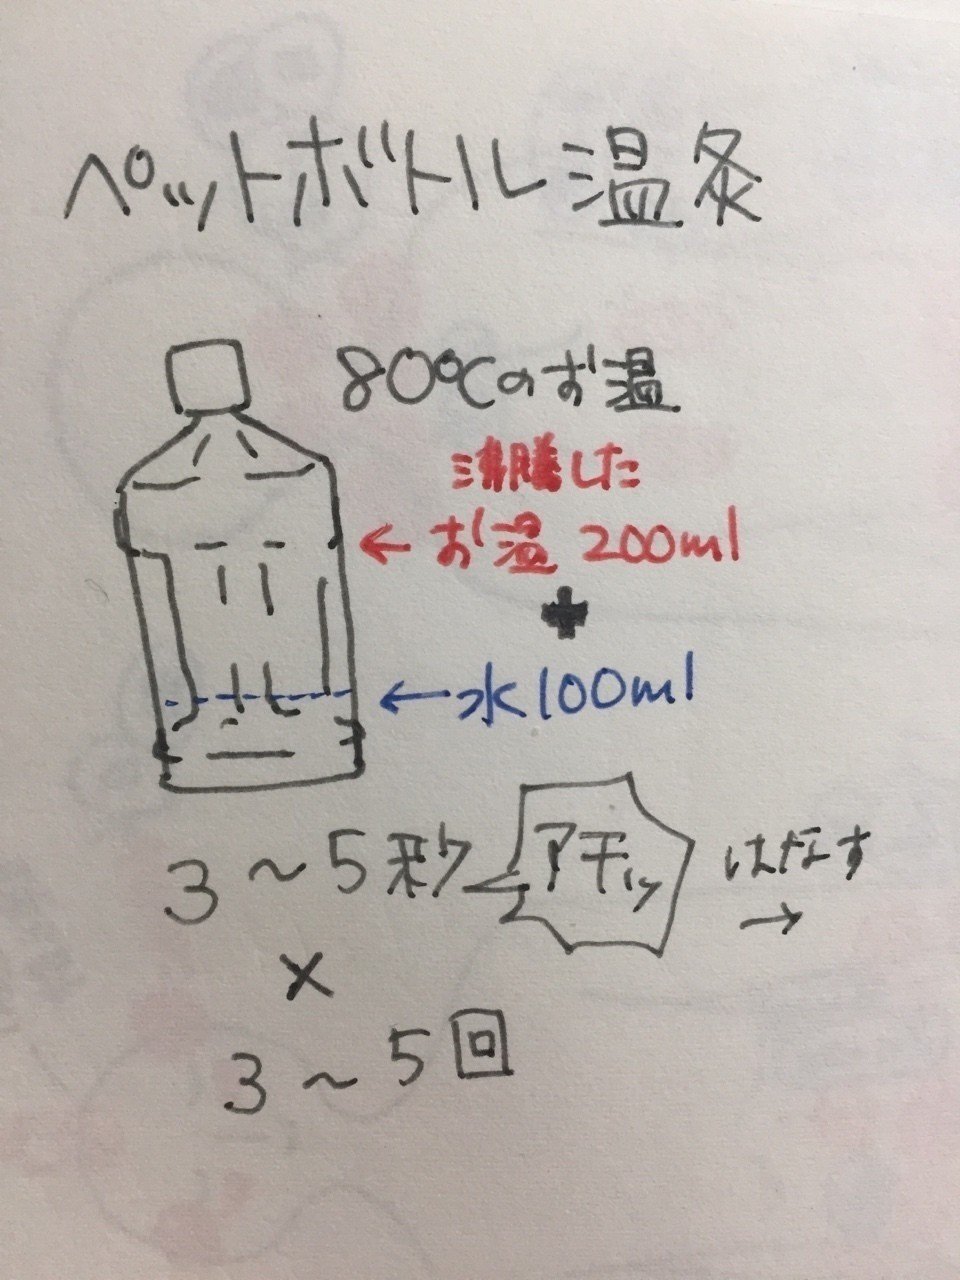 ペットボトル温灸
80℃のお温
沸騰した
← お温 200ml
+
← 水100ml
3〜5秒 アチッ はなす
→
×
3〜5回